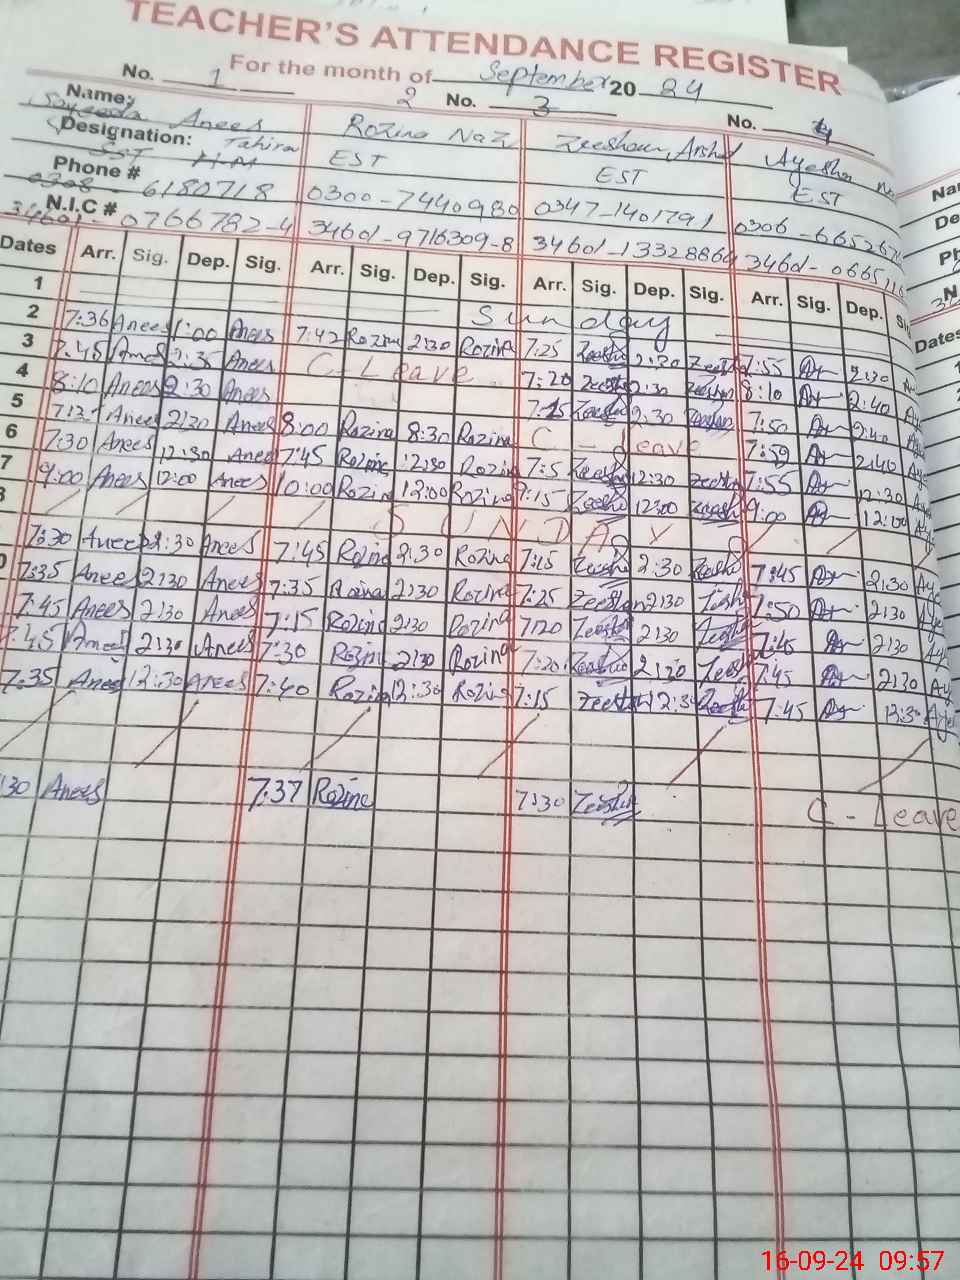 TEACHER'S ATTENDANCE REGISTER
For the month of September 2024
No. 1 2 No. 3 No. 4
Name: Anees Rozina Naz Zeeshan Arshad Ayesha
Designation: Tahira EST EST EST
SST H.M
Phone # 0308 - 6180718 0300-7440980 0347-1401791 0306-665267
N.I.C # 34601-0766782-4 34601-9716309-8 34601-1332886 34601-066511
Dates Arr. Sig. Dep. Sig. Arr. Sig. Dep. Sig. Arr. Sig. Dep. Sig. Arr. Sig. Dep.
1 Sunday
2 7:36 Anees 1:00 Anees 7:42 Rozina 2:30 Rozina 7:25 Zeesha 2:30 Zeesh 7:55 Ay 2:30
3 7:45 Anees 2:35 Anees C-Leave 7:20 Zeesha 2:30 Zeeshan 8:10 Ay 2:40
4 8:10 Anees 2:30 Anees 7:25 Zeesha 2:30 Zeeshan 7:50 Ay 2:40
5 Anees 2:30 Anees 8:00 Rozina 8:30 Rozina C-Leave 7:59 Ay 2:40
6 7:30 Anees 12:30 Anees 7:45 Rozina 12:30 Rozina 7:5 Zeesha 12:30 Zeesha 7:55 Ay 12:30
7 9:00 Anees 12:00 Anees 10:00 Rozina 12:00 Rozina 9:15 Zeesha 12:00 Zeesha 9:00 Ay 12:00
SUNDAY
7:30 Anees 2:30 Anees 7:45 Rozina 2:30 Rozina 7:15 Zeesha 2:30 Zeesh 7:45 Ay 2:30 Ay
7:35 Anees 2:30 Anees 7:35 Rozina 2:30 Rozina 7:25 Zeeshan 2:30 Zeesh 7:50 Ay 2:30 Aye
7:45 Anees 2:30 Anees 7:15 Rozina 2:30 Rozina 7:20 Zeesha 2:30 Zeesha 7:40 Ay 2:30 Ay
7:45 Anees 2:30 Anees 7:30 Rozina 2:30 Rozina 7:20 Zeesha 2:30 Zeesh 7:45 Ay 2:30 Ay
7:35 Anees 12:30 Anees 7:40 Rozina 12:30 Rozina 7:15 Zeeshan 12:3 Zeesha 7:45 Ay 12:30 Aye
:30 Anees 7:37 Rozina 7:30 Zeeshan C-Leave
16-09-24 09:57